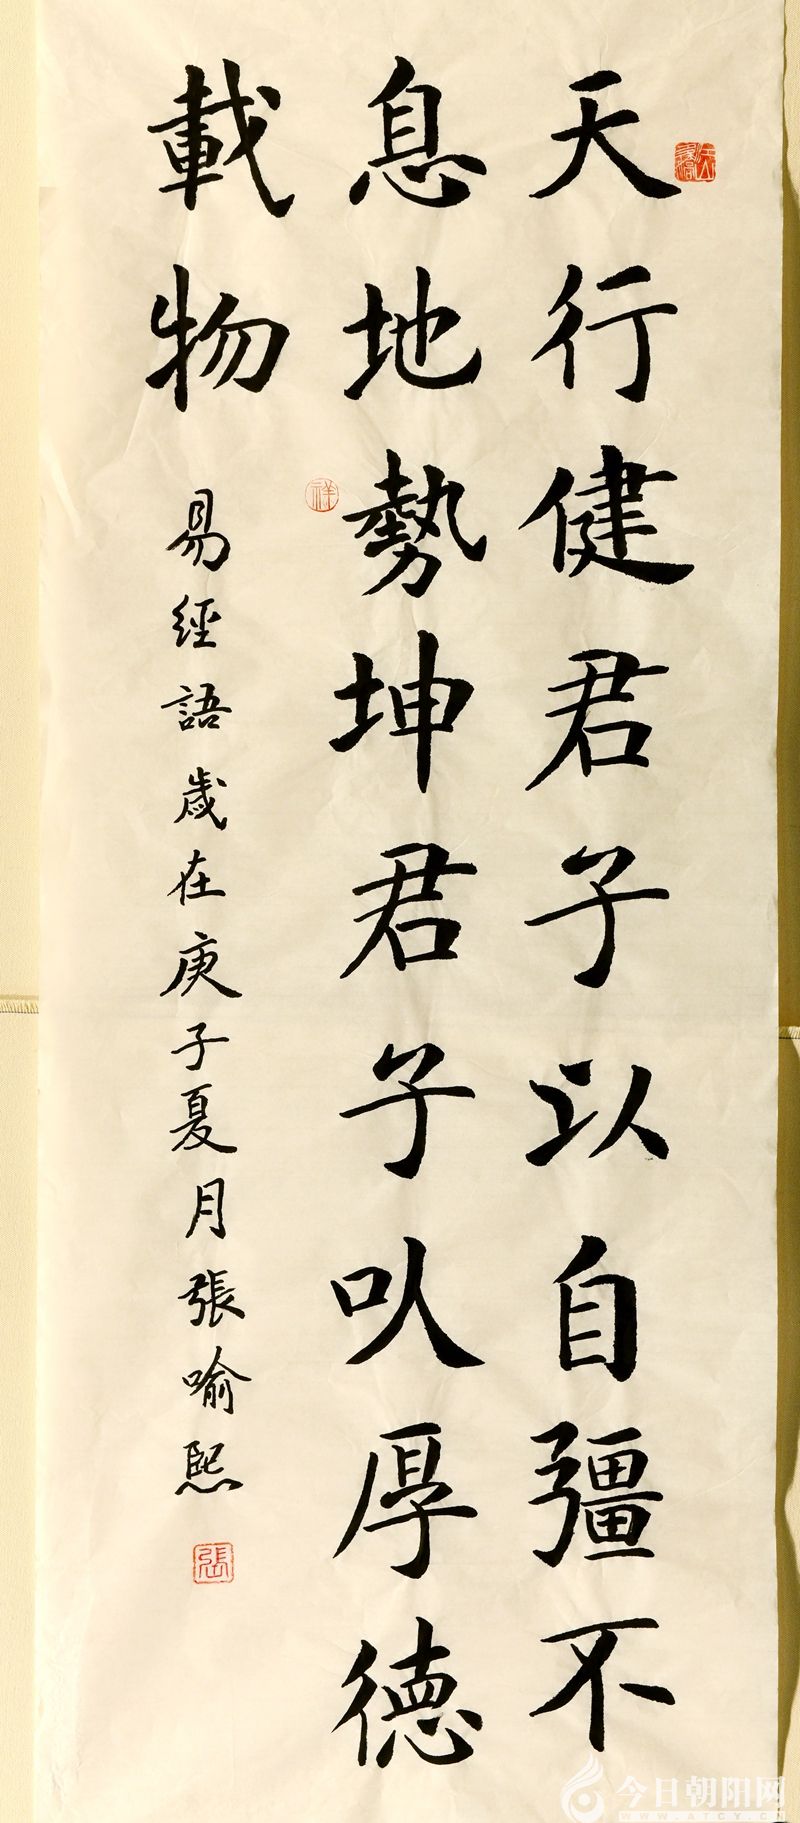 天行健君子以自彊不
息地勢坤君子以厚德
載物
易經語歲在庚子夏月張喻熙
祥
張
今日朝阳网
WWW.ATCY.COM